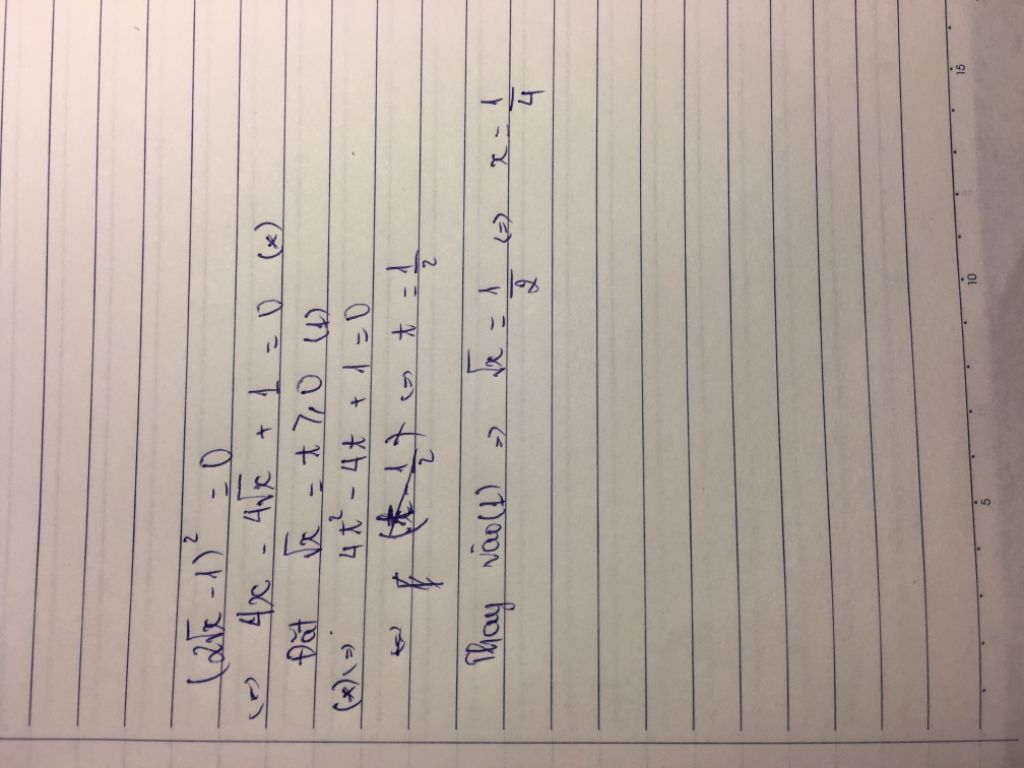 (2√x - 1)² = 0
(=) 4x - 4√x + 1 = 0 (*)
Đặt √x = t ⩾ 0 (1)
(*) (=) 4t² - 4t + 1 = 0
(=) t = 1/2
Thay vào (1) => √x = 1/2 (=) x = 1/4
5
10
15